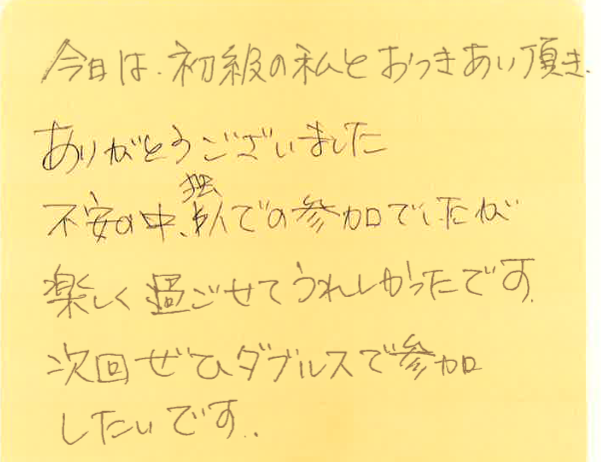 今日は、初級の私とおつきあい頂き、
ありがとうございました
不安の中、独人での参加でしたが
楽しく過ごせてうれしかったです。
次回ぜひダブルスで参加
したいです。